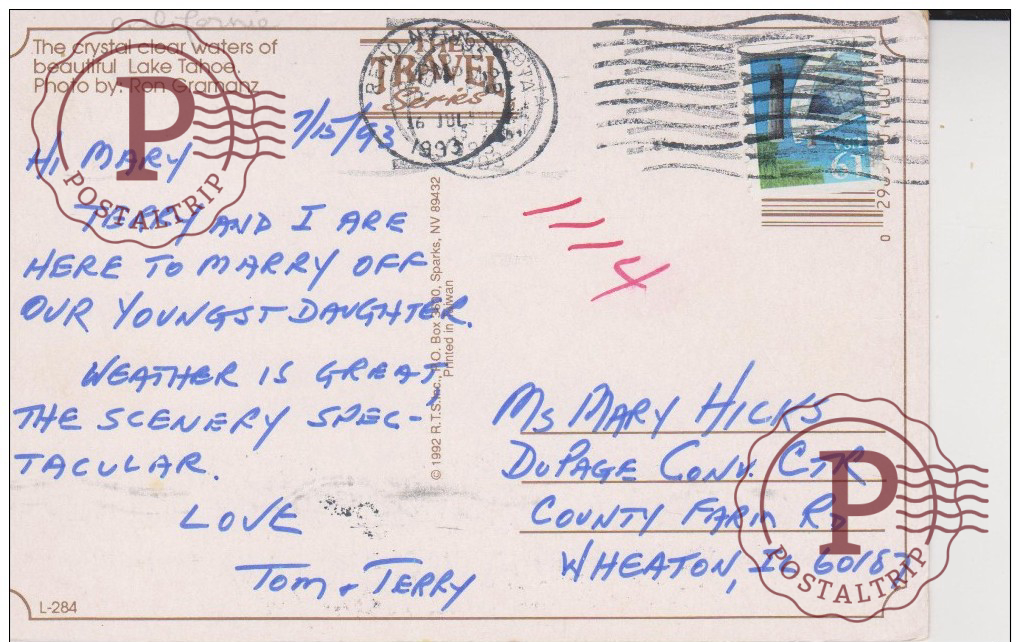 California
The crystal clear waters of
beautiful Lake Tahoe.
Photo by: Ron Gramanz
THE
TRAVEL
Series
RENO NV
PM
16 JUL
1993
7/15/93
HI MARY
TERRY AND I ARE
HERE TO MARRY OFF
OUR YOUNGST DAUGHTER.
WEATHER IS GREAT,
THE SCENERY SPEC-
TACULAR.
LOVE
TOM & TERRY
L-284
© 1992 R.T.S. Inc., P.O. Box Sparks, NV 89432
Printed in Taiwan
1114
MS MARY HICKS
DUPAGE CONV. CTR
COUNTY FARM RD
WHEATON, IL 60187
USA
61
0
P
POSTALTRIP
P
POSTALTRIP